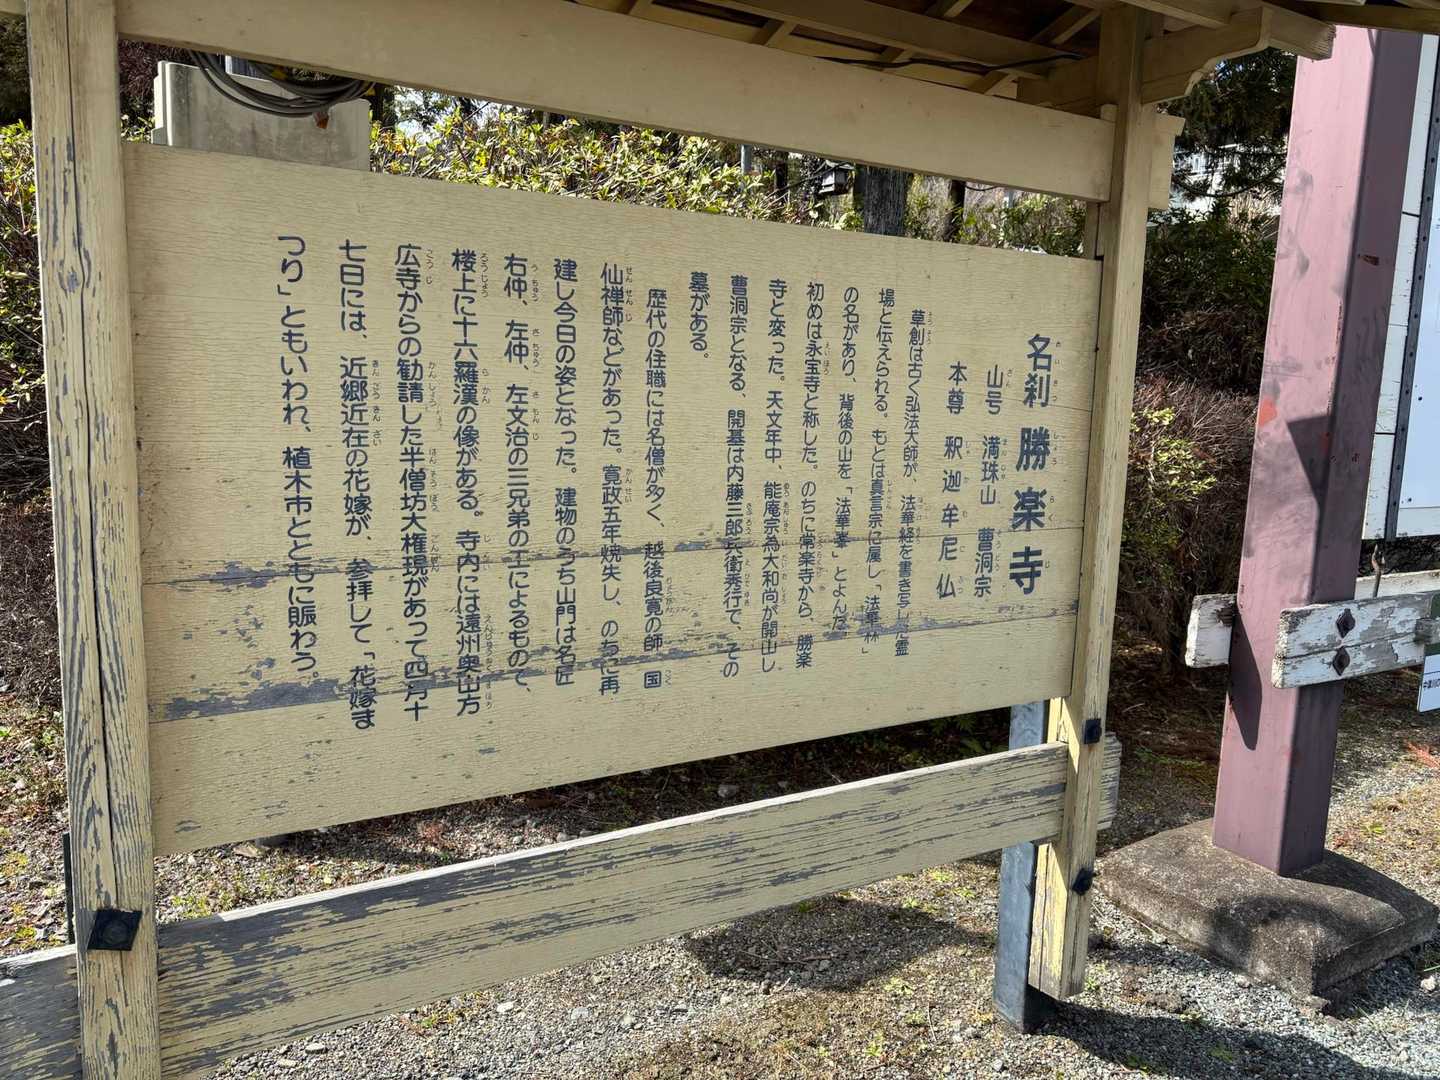 名刹 勝楽寺
山号 満珠山 曹洞宗
本尊 釈迦牟尼仏
草創は古く弘法大師が、法華経を書き写した霊
場と伝えられる。もとは真言宗に属し「法華林」
の名があり、背後の山を「法華峯」とよんだ。
初めは永宝寺と称した。のちに常楽寺から、勝楽
寺と変った。天文年中、能庵宗為大和尚が開山し
曹洞宗となる、開基は内藤三郎兵衛秀行で、その
墓がある。
歴代の住職には名僧が多く、越後良寛の師 国
仙禅師などがあった。寛政五年焼失し、のちに再
建し今日の姿となった。建物のうち山門は名匠
右仲、左仲、左文治の三兄弟の工によるもので、
楼上に十六羅漢の像がある。寺内には遠州奥山方
広寺からの勧請した半僧坊大権現があって四月十
七日には、近郷近在の花嫁が、参拝して「花嫁ま
つり」ともいわれ、植木市とともに賑わう。